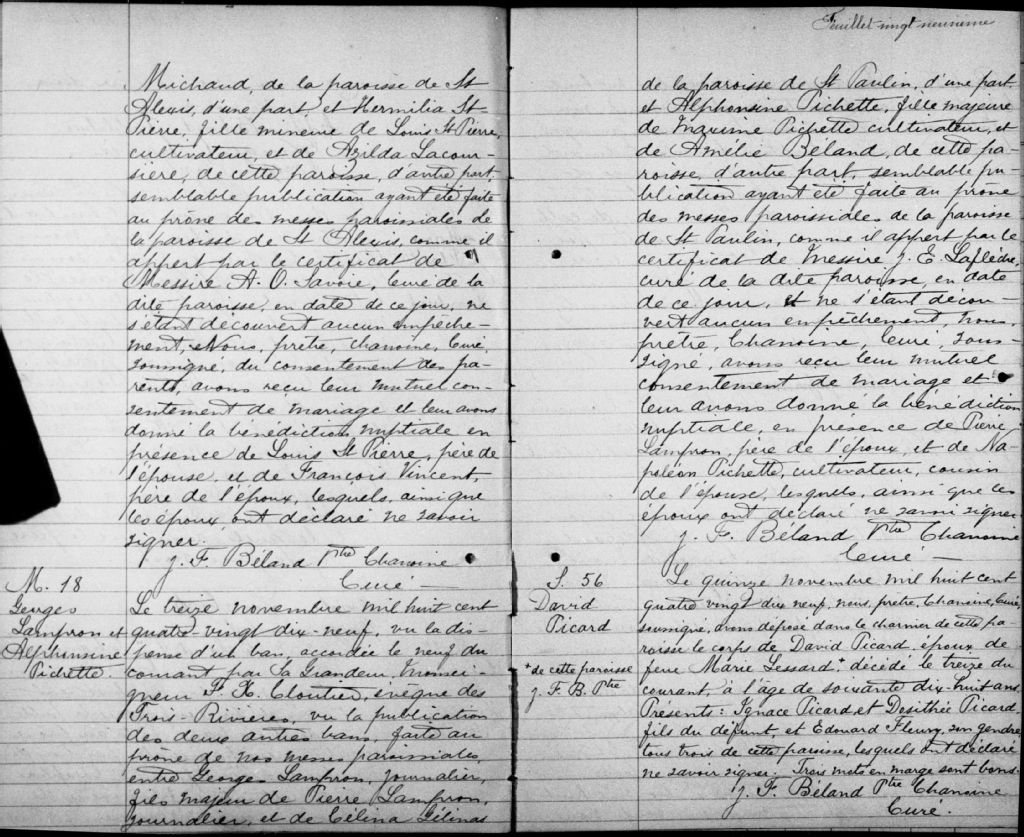 Michaud, de la paroisse de St
Alexis, d'une part, et Hermilia St-
Pierre, fille mineure de Louis St Pierre,
cultivateur, et de Azilda Lacour-
sière, de cette paroisse, d'autre part,
semblable publication ayant été faite
au prône des messes paroissiales de
la paroisse de St Alexis, comme il
appert par le certificat de
Messire A. O. Savoie, Curé de la
dite paroisse, en date de ce jour, ne
s'étant découvert aucun empêche-
ment, Nous, prêtre, chanoine, Curé,
soussigné, du consentement des pa-
rents, avons reçu leur mutuel con-
sentement de mariage et leur avons
donné la bénédiction nuptiale en
présence de Louis St Pierre, père de
l'épouse, et de François Vincent,
père de l'époux, lesquels, ainsi que
les époux ont déclaré ne savoir
signer.
J. F. Béland Ptre Chanoine
Curé —
M. 18
Georges
Lampron et
Alphonsine
Pichette.
Le treize novembre mil huit cent
quatre-vingt dix-neuf, vu la dis-
pense d'un ban, accordée le neuf du
courant par Sa Grandeur, Monsei-
gneur F. X. Cloutier, évêque des
Trois-Rivières, vu la publication
des deux autres bans, faite au
prône de nos messes paroissiales,
entre Georges Lampron, journalier,
fils majeur de Pierre Lampron,
journalier, et de Célina Gélinas
Feuillet vingt neuvième
de la paroisse de St Paulin, d'une part,
et Alphonsine Pichette, fille majeure
de Maxime Pichette cultivateur, et
de Amélie Béland, de cette pa-
roisse, d'autre part, semblable pu-
blication ayant été faite au prône
des messes paroissiales de la paroisse
de St Paulin, comme il appert par le
certificat de Messire J. E. Laflèche,
curé de la dite paroisse, en date
de ce jour, et ne s'étant décou-
vert aucun empêchement, Nous,
prêtre, Chanoine, Curé, sous-
signé, avons reçu leur mutuel
consentement de mariage et
leur avons donné la bénédiction
nuptiale, en présence de Pierre
Lampron, père de l'époux, et de Na-
poléon Pichette, cultivateur, cousin
de l'épouse, lesquels, ainsi que les
époux ont déclaré ne savoir signer
J. F. Béland Ptre Chanoine
Curé —
S. 56
David
Picard
+ de cette paroisse
J. F. B. Ptre
Le quinze novembre mil huit cent
quatre vingt dix neuf, nous, prêtre, Chanoine, Curé,
soussigné, avons déposé dans le charnier de cette pa-
roisse le corps de David Picard, époux de
feue Marie Lessard + décédé le treize du
courant, à l'âge de soixante dix-huit ans.
Présents: Ignace Picard et Dosithée Picard,
fils du défunt, et Edouard Fleury, son gendre,
tous trois de cette paroisse, lesquels ont déclaré
ne savoir signer. Trois mots en marge sont bons.
J. F. Béland Ptre Chanoine
Curé.